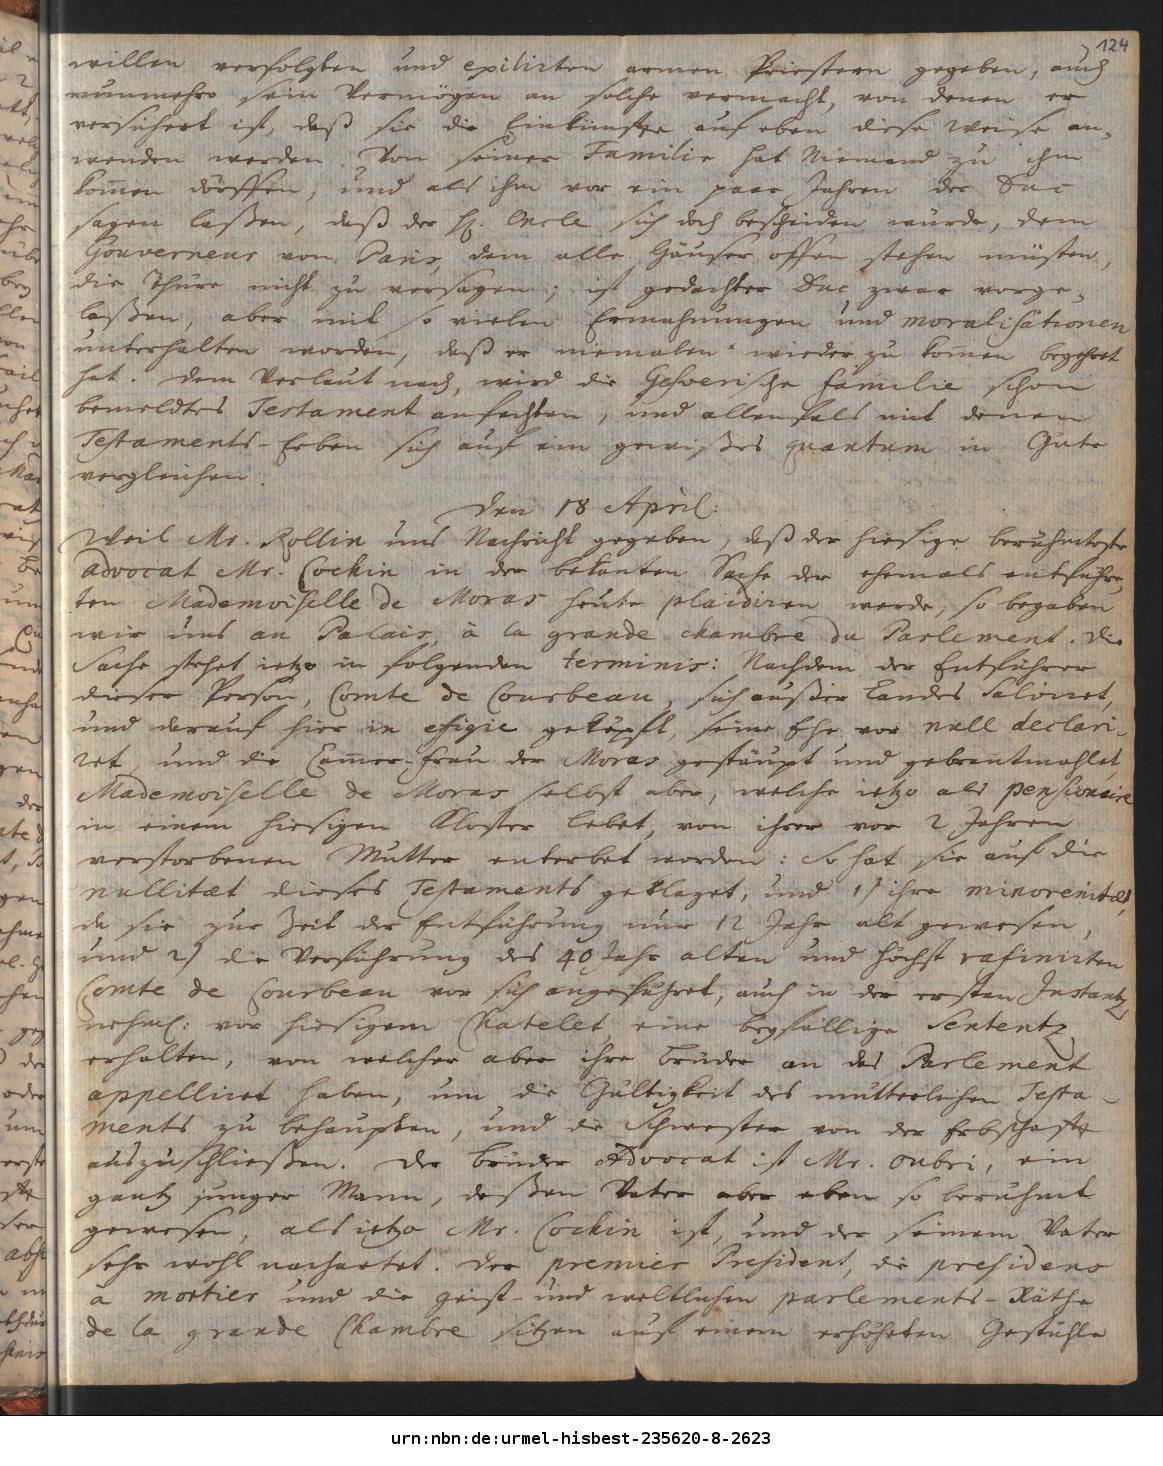 124
willen verfolgten und exilirten armen Priestern gegeben, auch
nunmehro sein Vermögen an solche vermacht, von denen er
versichert ist, daß sie die Einkünfte auf eben diese Weise an-
wenden werden. Von seiner Familie hat Niemand zu ihm
kom̄en dörffen, und als ihm vor ein paar Jahren der Duc
sagen laßen, daß der H. Oncle sich doch bescheiden würde, dem
Gouverneur von Paris, dem alle Häuser offen stehen müsten,
die Thüre nicht zu versagen; ist gedachter Duc zwar vorge-
laßen, aber mit so vielen Ermahnungen und moralisationen
unterhalten worden, daß er niemalen wieder zu kom̄en begehret
hat. Dem Verlaut nach, wird die Gesvrische Familie schon
bemeldtes Testament anfechten, und allenfals mit denen
Testaments-Erben sich auf ein gewißes quantum in Güte
vergleichen.
Den 18 April:
Weil Mr. Rollin uns Nachricht gegeben, daß der hiesige berühmteste
Advocat Mr. Cochin in der bekanten Sache der ehemals entführ-
ten Mademoiselle de Moras heute plaidiren werde, so begaben
wir uns au Palais, à la grande chambre du Parlement. Die
Sache stehet ietzo in folgenden terminis: Nachdem der Entführer
dieser Person, Comte de Courbeau, sich außer Landes salviret,
und darauf hier in effigie geköpft, seine Ehe vor null declari-
ret, und die Cam̄er-Frau der Moras gestäupt und gebrantmahlet,
Mademoiselle de Moras selbst aber, welche ietzo als pensionaire
in einem hiesigen Kloster lebet, von ihrer vor 2 Jahren
verstorbenen Mutter enterbet worden: So hat sie auf die
nullitæt dieses Testaments geklaget, und 1) ihre minorenitæt,
da sie zur Zeit der Entführung nur 12 Jahr alt gewesen,
und 2) die Verführung des 40 Jahr alten und höchst rafinirten
Comte de Courbeau vor sich angeführet, auch in der ersten Instantz
nehml: vor hiesigem Chatelet eine beyfällige Sententz
erhalten, von welcher aber ihre Brüder an das Parlement
appelliret haben, um die Gültigkeit des mütterlichen Testa-
ments zu behaupten, und die Schwester von der Erbschafft
auszuschließen. Der Brüder Advocat ist Mr. Oubri, ein
gantz junger Mann, deßen Vater aber eben so berühmt
gewesen, als ietzo Mr. Cochin ist, und der seinem Vater
sehr wohl nachartet. Der premier President, die presidens
à mortier und die geist- und weltlichen parlements-Räthe
de la grande Chambre sitzen auf einem erhöheten Gestühle
urn:nbn:de:urmel-hisbest-235620-8-2623